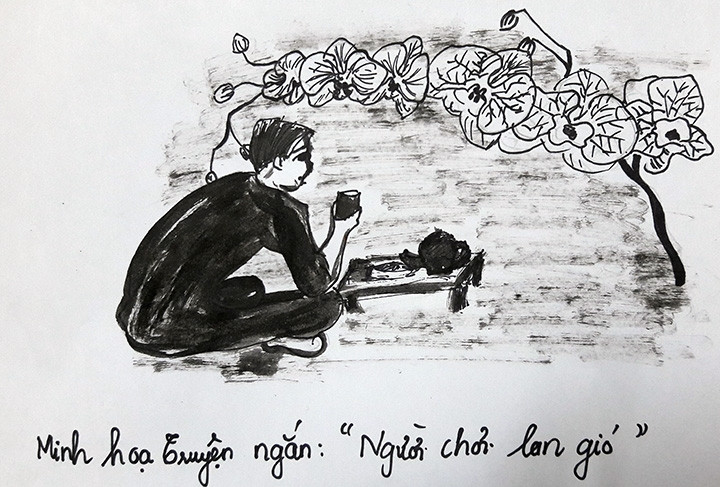 Minh hoạ truyện ngắn: "Người chơi lan gió"